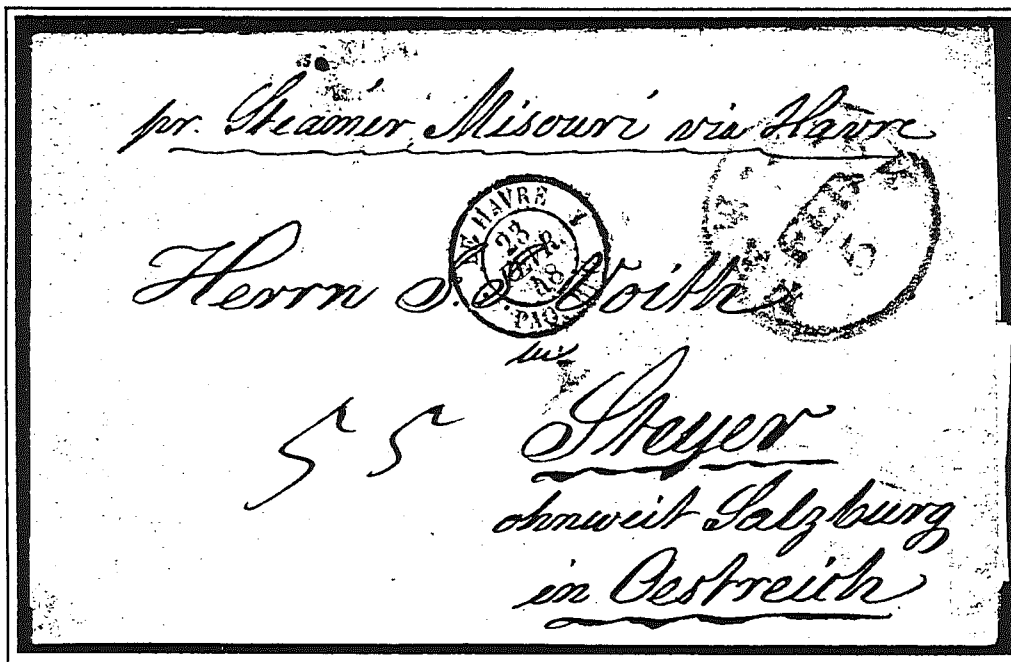 pr. Steamer Misouri via Havre
LE HAVRE 1
23
48
PAQ.
5
Herrn S. Voith
in
Steyer
55
ohnweit Salzburg
in Oestreich